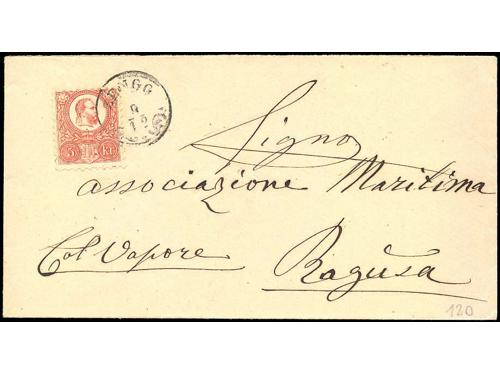 5 Kr
ZENGG
9
15
Signo
associazione Marítima
Col Vapore
Ragusa
120